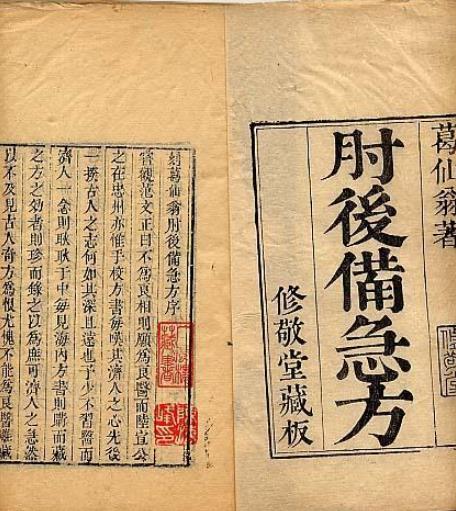 葛仙翁著
肘後備急方
修敬堂藏板
刻葛仙翁肘後備急方序
嘗觀范文正曰不為良相則願為良醫而陸宣公
之在忠州亦惟手校方書每嘆其濟人之心先後
一揆古人之志何如其深且遠也予少不習醫而
濟人一念則耿耿于中每見海內方書則購而藏
之方之效者則珍而錄之以為庶可濟人之急然
以不及見古人奇方為恨尤愧不能為良醫雖藏
藏書